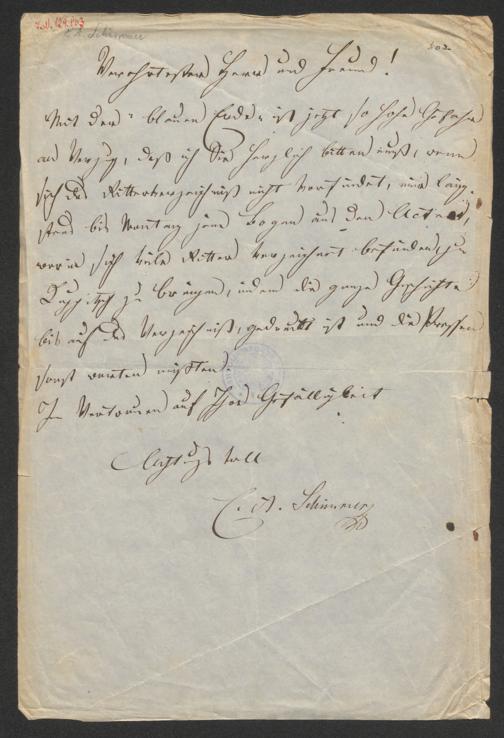 I.N. 129.803
C. A. Schimmer
502
Verehrtester Herr und Freund!
Mit der "blauen Erde" ist jetzt so hohe Gefahr
am Verzug, daß ich Sie herzlich bitten muß, wenn
sich das Ritterverzeichniß nicht vorfindet, mir läng-
stens bis Montag jene Bogen aus den Acten,
worin sich viele Ritter verzeichnet befinden, zu
zu bringen, indem die ganze Geschichte
bis auf das Verzeichniß, gedruckt ist und die Pressen
sonst warten müßten.
Im Vertrauen auf Ihre Gefälligkeit
Achtungsvoll
C. A. Schimmer